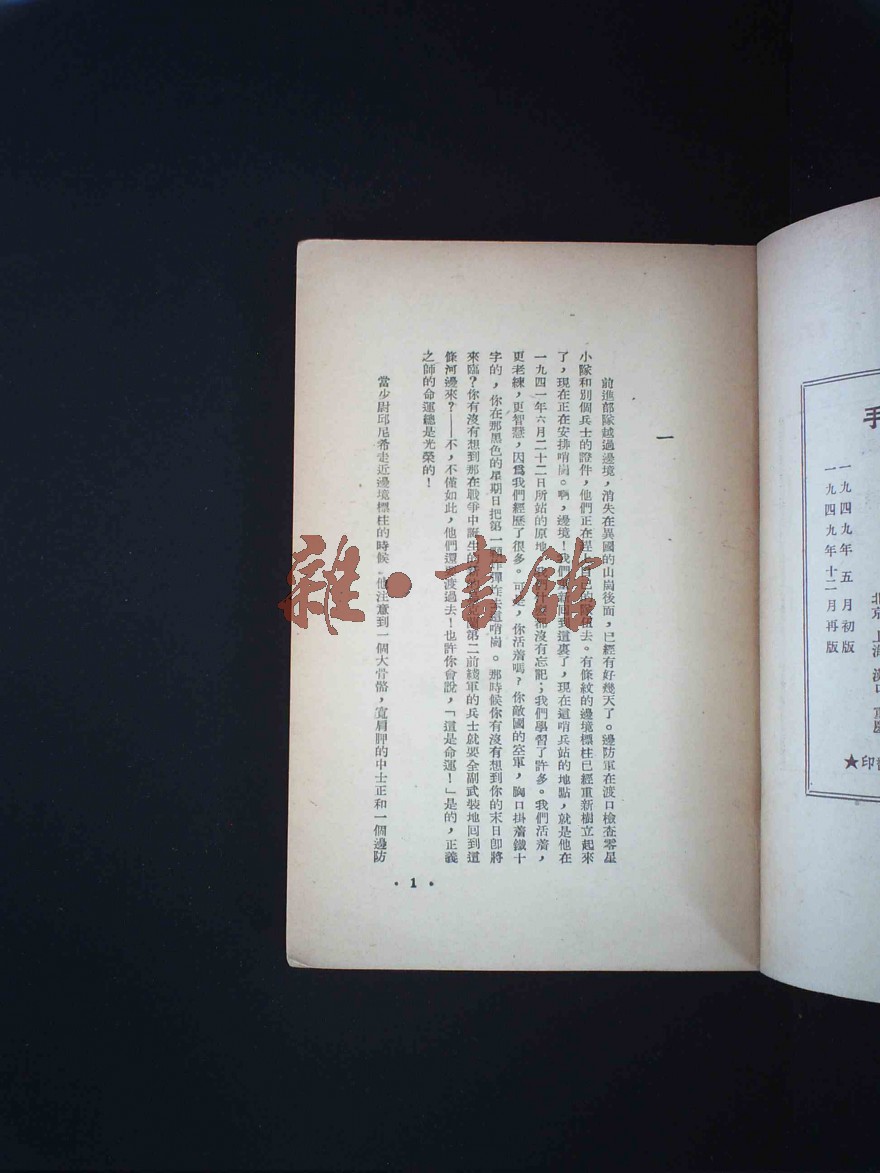 手
一九四九年五月初版
一九四九年十二月再版
北京 上海 漢口 重慶
★印
一
前進部隊越過邊境，消失在異國的山崗後面，已經有好幾天了。邊防軍在渡口檢查零星
小隊和別個兵士的證件，他們正在趕自己的隊伍去。有條紋的邊境標柱已經重新樹立起來
了，現在正在安排哨崗。啊，邊境！我們又囘到這裏了，現在這哨兵站的地點，就是他在
一九四一年六月二十二日所站的原地。我們什麼都沒有忘記；我們學習了許多。我們活着，
更老練，更智慧，因爲我們經歷了很多。可是，你活着嗎？你敵國的空軍，胸口掛着鐵十
字的，你在那黑色的星期日把第一顆炸彈炸去這哨崗。那時候你有沒有想到你的末日卽將
來臨？你有沒有想到那在戰爭中誕生的第二前綫軍的兵士就要全副武裝地囘到這
條河邊來？——不，不僅如此，他們還要渡過去！也許你會說，「這是命運！」是的，正義
之師的命運總是光榮的！
當少尉邱尼希走近邊境標柱的時候，他注意到一個大骨骼，寬肩胛的中士正和一個邊防
•1•
雜•書館